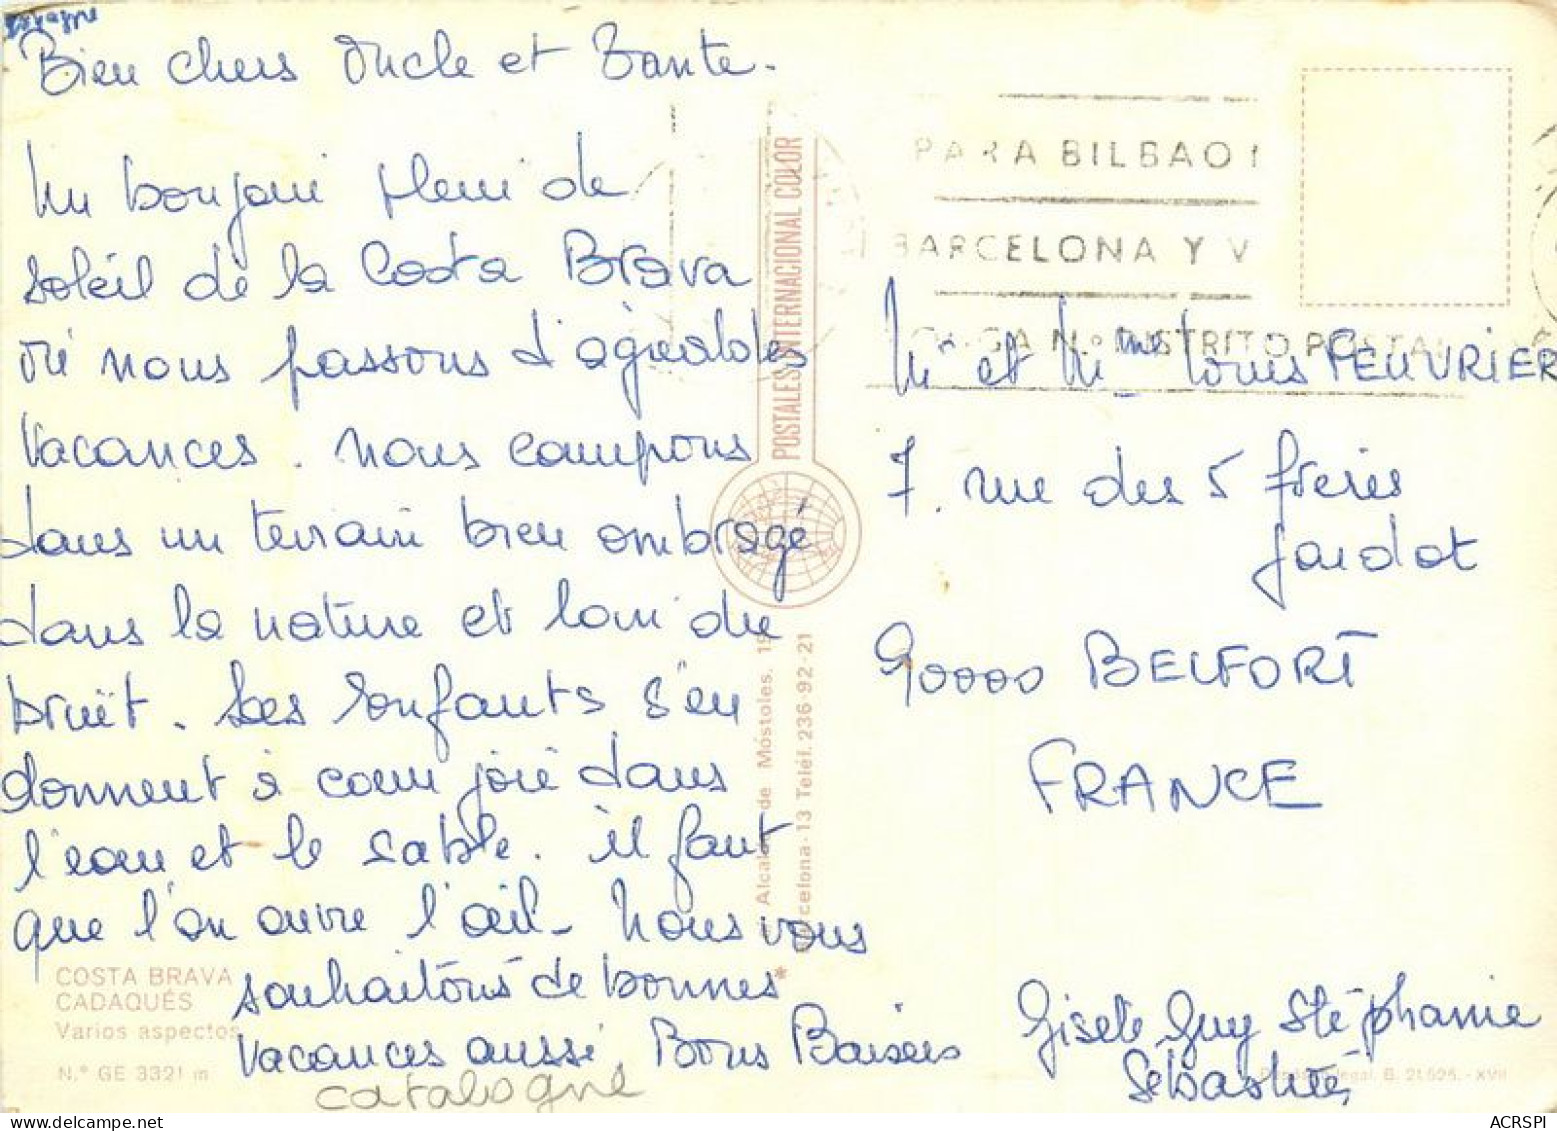 Bien chers Oncle et Tante.
Un bonjour plein de
soleil de la Costa Brava
où nous passons d'agréables
vacances. nous campons
dans un terrain bien ombragé
dans la nature et loin du
bruit. Les enfants s'en
donnent à cœur joie dans
l'eau et le sable. il faut
que l'on ouvre l'œil. Nous vous
souhaitons de bonnes
vacances aussi. Bons Baisers
Gisele Guy Stéphanie
Sébastien
catalogne
PARA BILBAO
BARCELONA Y V
N.º DISTRITO POSTAL
M et Mme Louis FEUVRIER
7. rue des 5 frères
Jardot
90000 BELFORT
FRANCE
POSTALES INTERNACIONAL COLOR
Alcalde de Móstoles. 19
Barcelona-13 Teléf. 236-92-21
COSTA BRAVA
CADAQUÉS
Varios aspectos
N.º GE 3321 m
Depósito Legal. B. 21.525.-XVII
ACRSPI